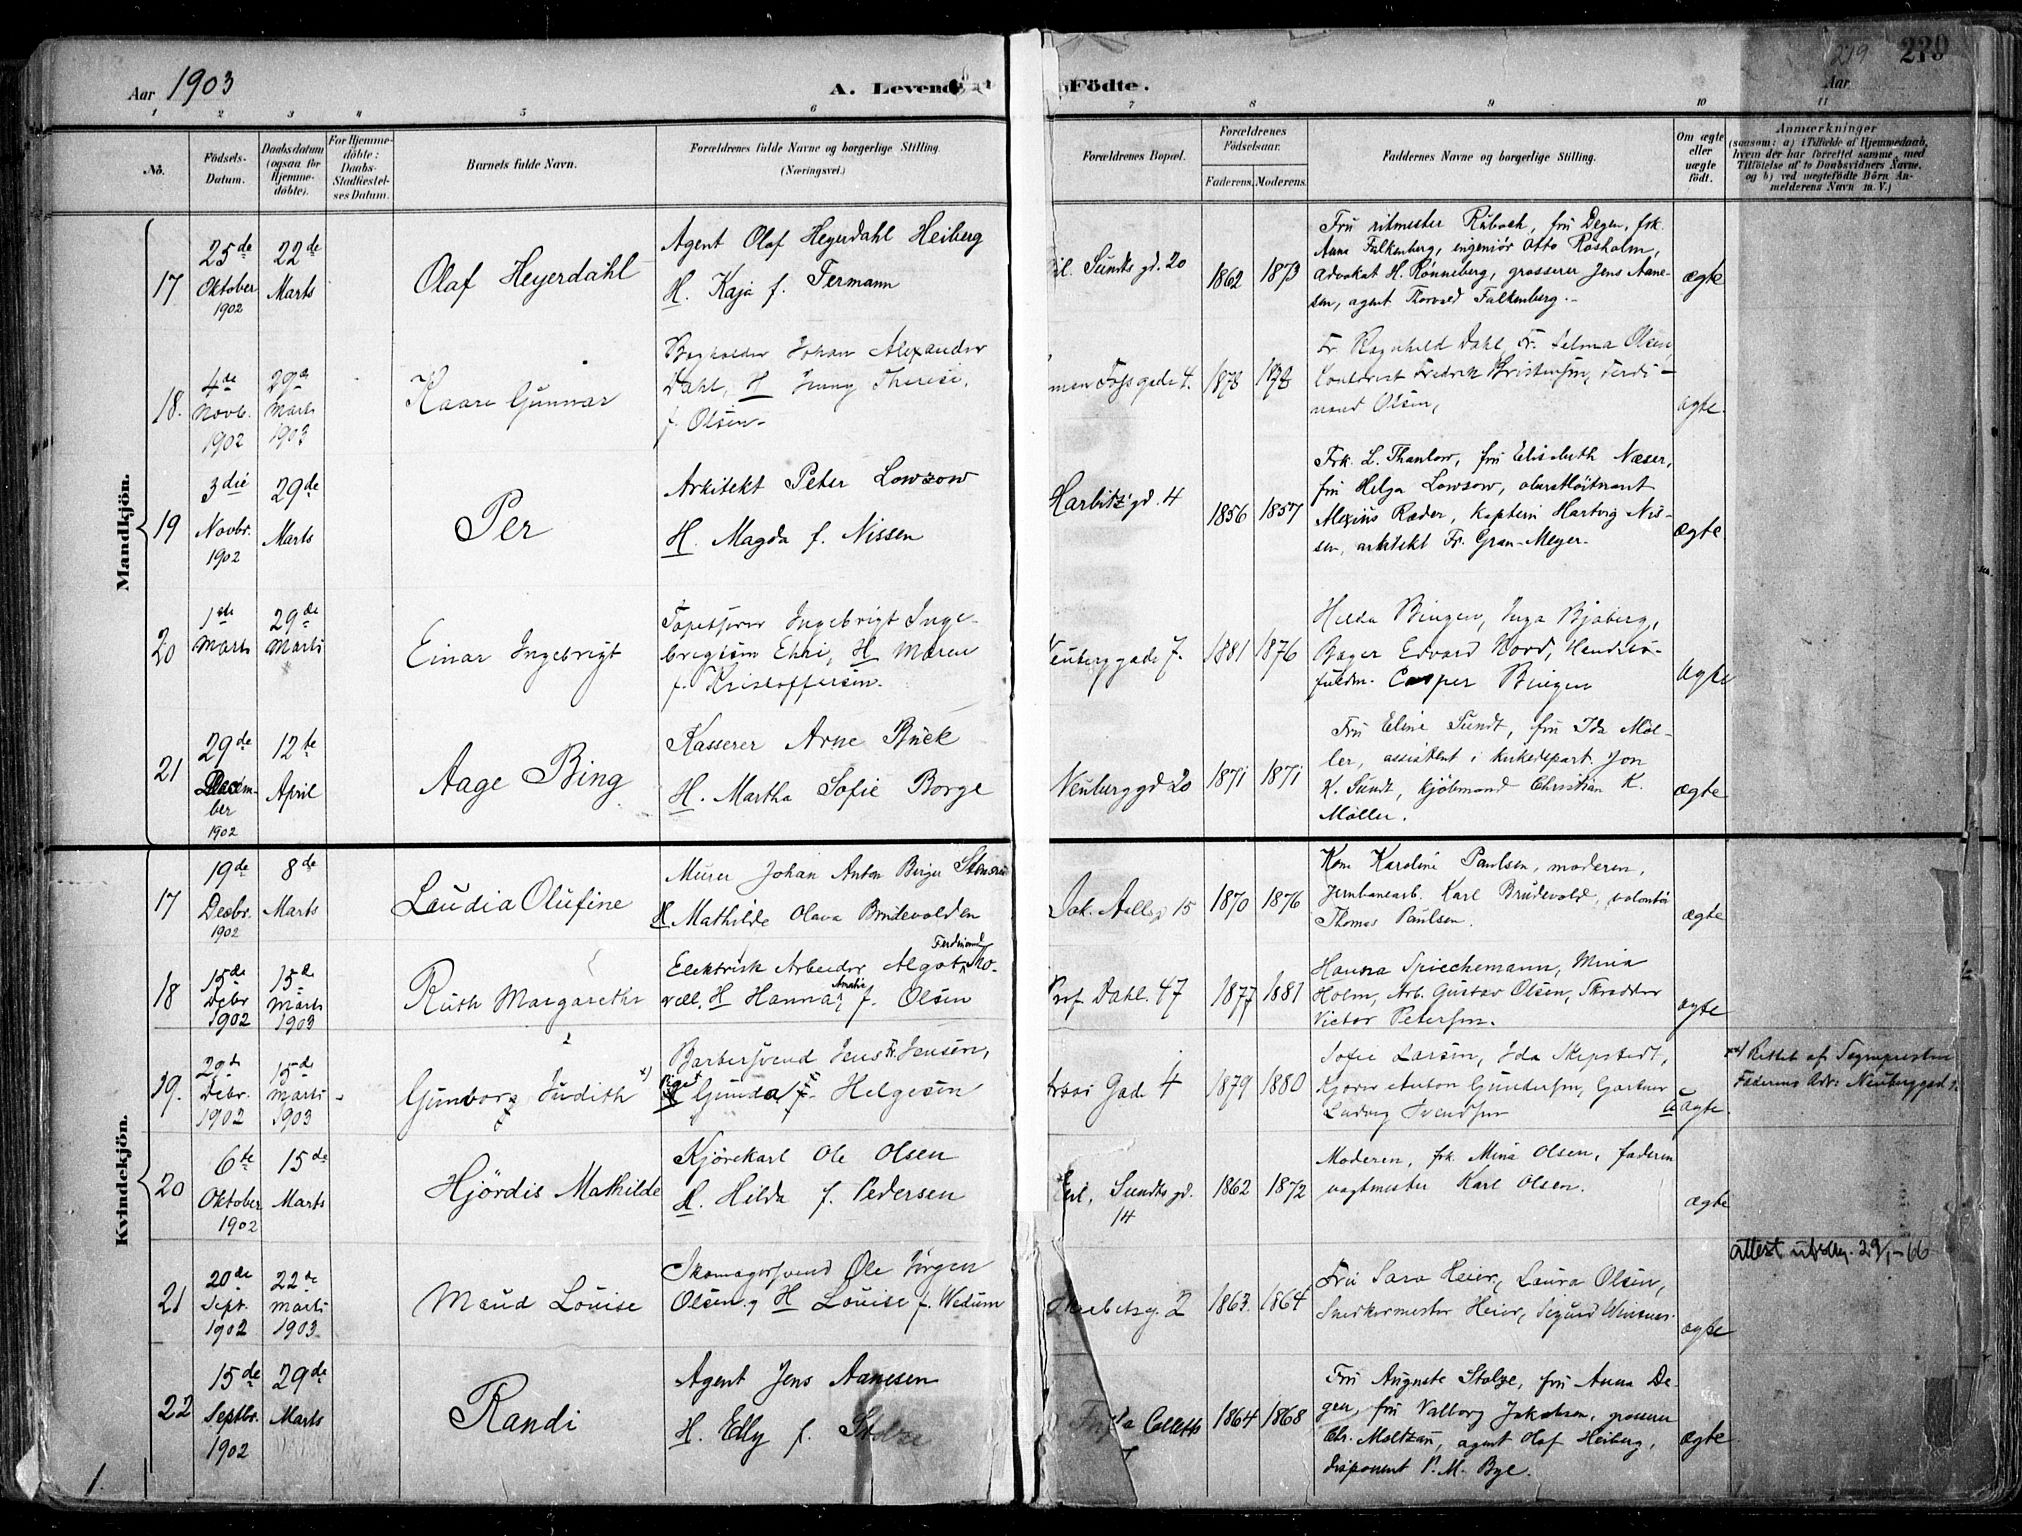 Aar 1903
A. Levende
Födte.
219
220
Aar
1 2 3 4 5 6 7 8 9 10 11
No.
Födsels-
Datum.
Daabsdatum
(ogsaa for
Hjemme-
döbte).
For Hjemme-
döbte:
Daabs-
Stadfæstel-
ses Datum.
Barnets fulde Navn.
Forældrenes fulde Navne og borgerlige Stilling.
(Næringsvei.)
Forældrenes Bopæl.
Forældrenes
Födselsaar.
Faderens. Moderens.
Faddernes Navne og borgerlige Stilling.
Om ægte
eller
uægte
født.
Anmærkninger
(saasom: a) i Tilfælde af Hjemmedaab,
hvem der har forrettet samme, med
Tilföielse af to Daabsvidners Navne,
og b) ved uægtefödte Börn An-
melderens Navn m. V.)
Mandkjön.
17
25de
Oktober
1902
22de
Marts
Olaf Heyerdahl
Agent Olaf Heyerdahl Heiberg
H. Kaja f. Fermann
Eil. Sundts gd. 20
1862 1873
Fru ritmester Rubach, fru Degen, frk.
Anna Falkenberg, ingeniør Otto Rosholm,
advokat H. Rønneberg, grosserer Jens Aane-
sen, agent Torvald Falkenberg.
ægte
18.
4de
Novb.
1902
29de
Marts
1903
Kaare Gunnar
Bogholder Johan Alexander
Dahl, H Jenny Therese,
f. Olsen.
Foss gade 4.
1878 1878
Fr. Ragnhild Dahl Fr. Selma Olsen,
Contorist Fredrik Kristensen, Ferdi-
nand Olsen,
ægte.
19
3die
Novbr.
1902
29de
Marts
Per
Arkitekt Peter Lowzow
H. Magda f. Nissen
Harbitz' gd. 4
1856 1857
Frk. L. Thaulow, fru Elisabeth Næser,
fru Helga Lowsow, oberstløitnant
Alexius Ræder, kaptein Hartvig Nis-
sen, arkitekt Fr. Gran-Meyer.
ægte
20
1ste
Marts
29de
Marts
Einar Ingebrigt
Tapetserer Ingebrigt Inge-
brigtsen Ekri, H Maren
f. Kristoffersen.
Neuberggade 7.
1881 1876
Hilda Bingen, Inga Bjaberg,
Bager Edvard Nord, Handels-
fuldm. Casper Bingen
ægte
21
29de
Decem-
ber
1902
12te
April
Aage Bing
Kasserer Arne Buck
H. Martha Sofie Borge
Neuberggd 20
1871 1871
Fru Eline Sundt, fru Ida Møl-
ler, assistent i kirkedepart. Jon
K. Sundt, kjøbmand Christian K.
Møller.
ægte
Kvindekjön.
17
19de
Decbr.
1902
8de
Marts
Laudia Olufine
Murer Johan Anton Birger
H Mathilde Olava Brudevolden
Jak. Aalls g 15
1870 1876
Kone Karoline Paulsen, moderen,
Jernbanearb. Karl Brudevold, volontør
Thomas Paulsen.
ægte
18
15de
Debr
1902
15de
Marts
1903
Ruth Margarethe
Elektrisk Arbeider Algot Ferdinand No-
rell. H Hanna Amalie f. Olsen
Prof. Dahl. 47
1877 1881
Hansa Spiechemann, Mina
Holm, Arb. Gustav Olsen, Skrædder
Victor Petersen.
ægte
19.
29de
Debr.
1902
15de
Marts
1903
Gunborg Judith x)
Barbersvend Jens Fr. Jensen,
Pige Gunda f. Helgesen
Gade 4
1879 1880
Sofie Larsen, Ida Skipstedt,
Kjører Anton Gundersen, Gartner
Ludvig Svendsen
uægte.
x) Rettet af Sognepresten
Faderens Adr: Neuberggad
20
6te
Oktober
1902
15de
Marts
Hjördis Mathilde
Kjørekarl Ole Olsen
H. Hilda f. Pedersen
Eil. Sundts gd.
14
1862 1872
Moderen, frk. Mina Olsen, faderen
vagtmester Karl Olsen.
ægte
21
20de
Sept.
1902
22de
Marts
1903
Maud Louise
Skomagersvend Ole Jörgen
Olsen og H Louise f. Wedum
2
1863. 1864
Fru Sara Heier, Laura Olsen,
Snedkermester Heier, Sigurd
ægte
attest utstedt. 29/1-66
22
15de
Septbr.
1902
29de
Marts
Randi
Agent Jens Aanesen
H. Elly f. Stolze
Colletts
1864 1868
Fru Auguste Stolze, fru Anna De-
gen, fru Valborg Jakobsen, grosserer
Chr. Moltzau, agent Olaf Heiberg,
disponent P. M. Bye.
ægte
1.